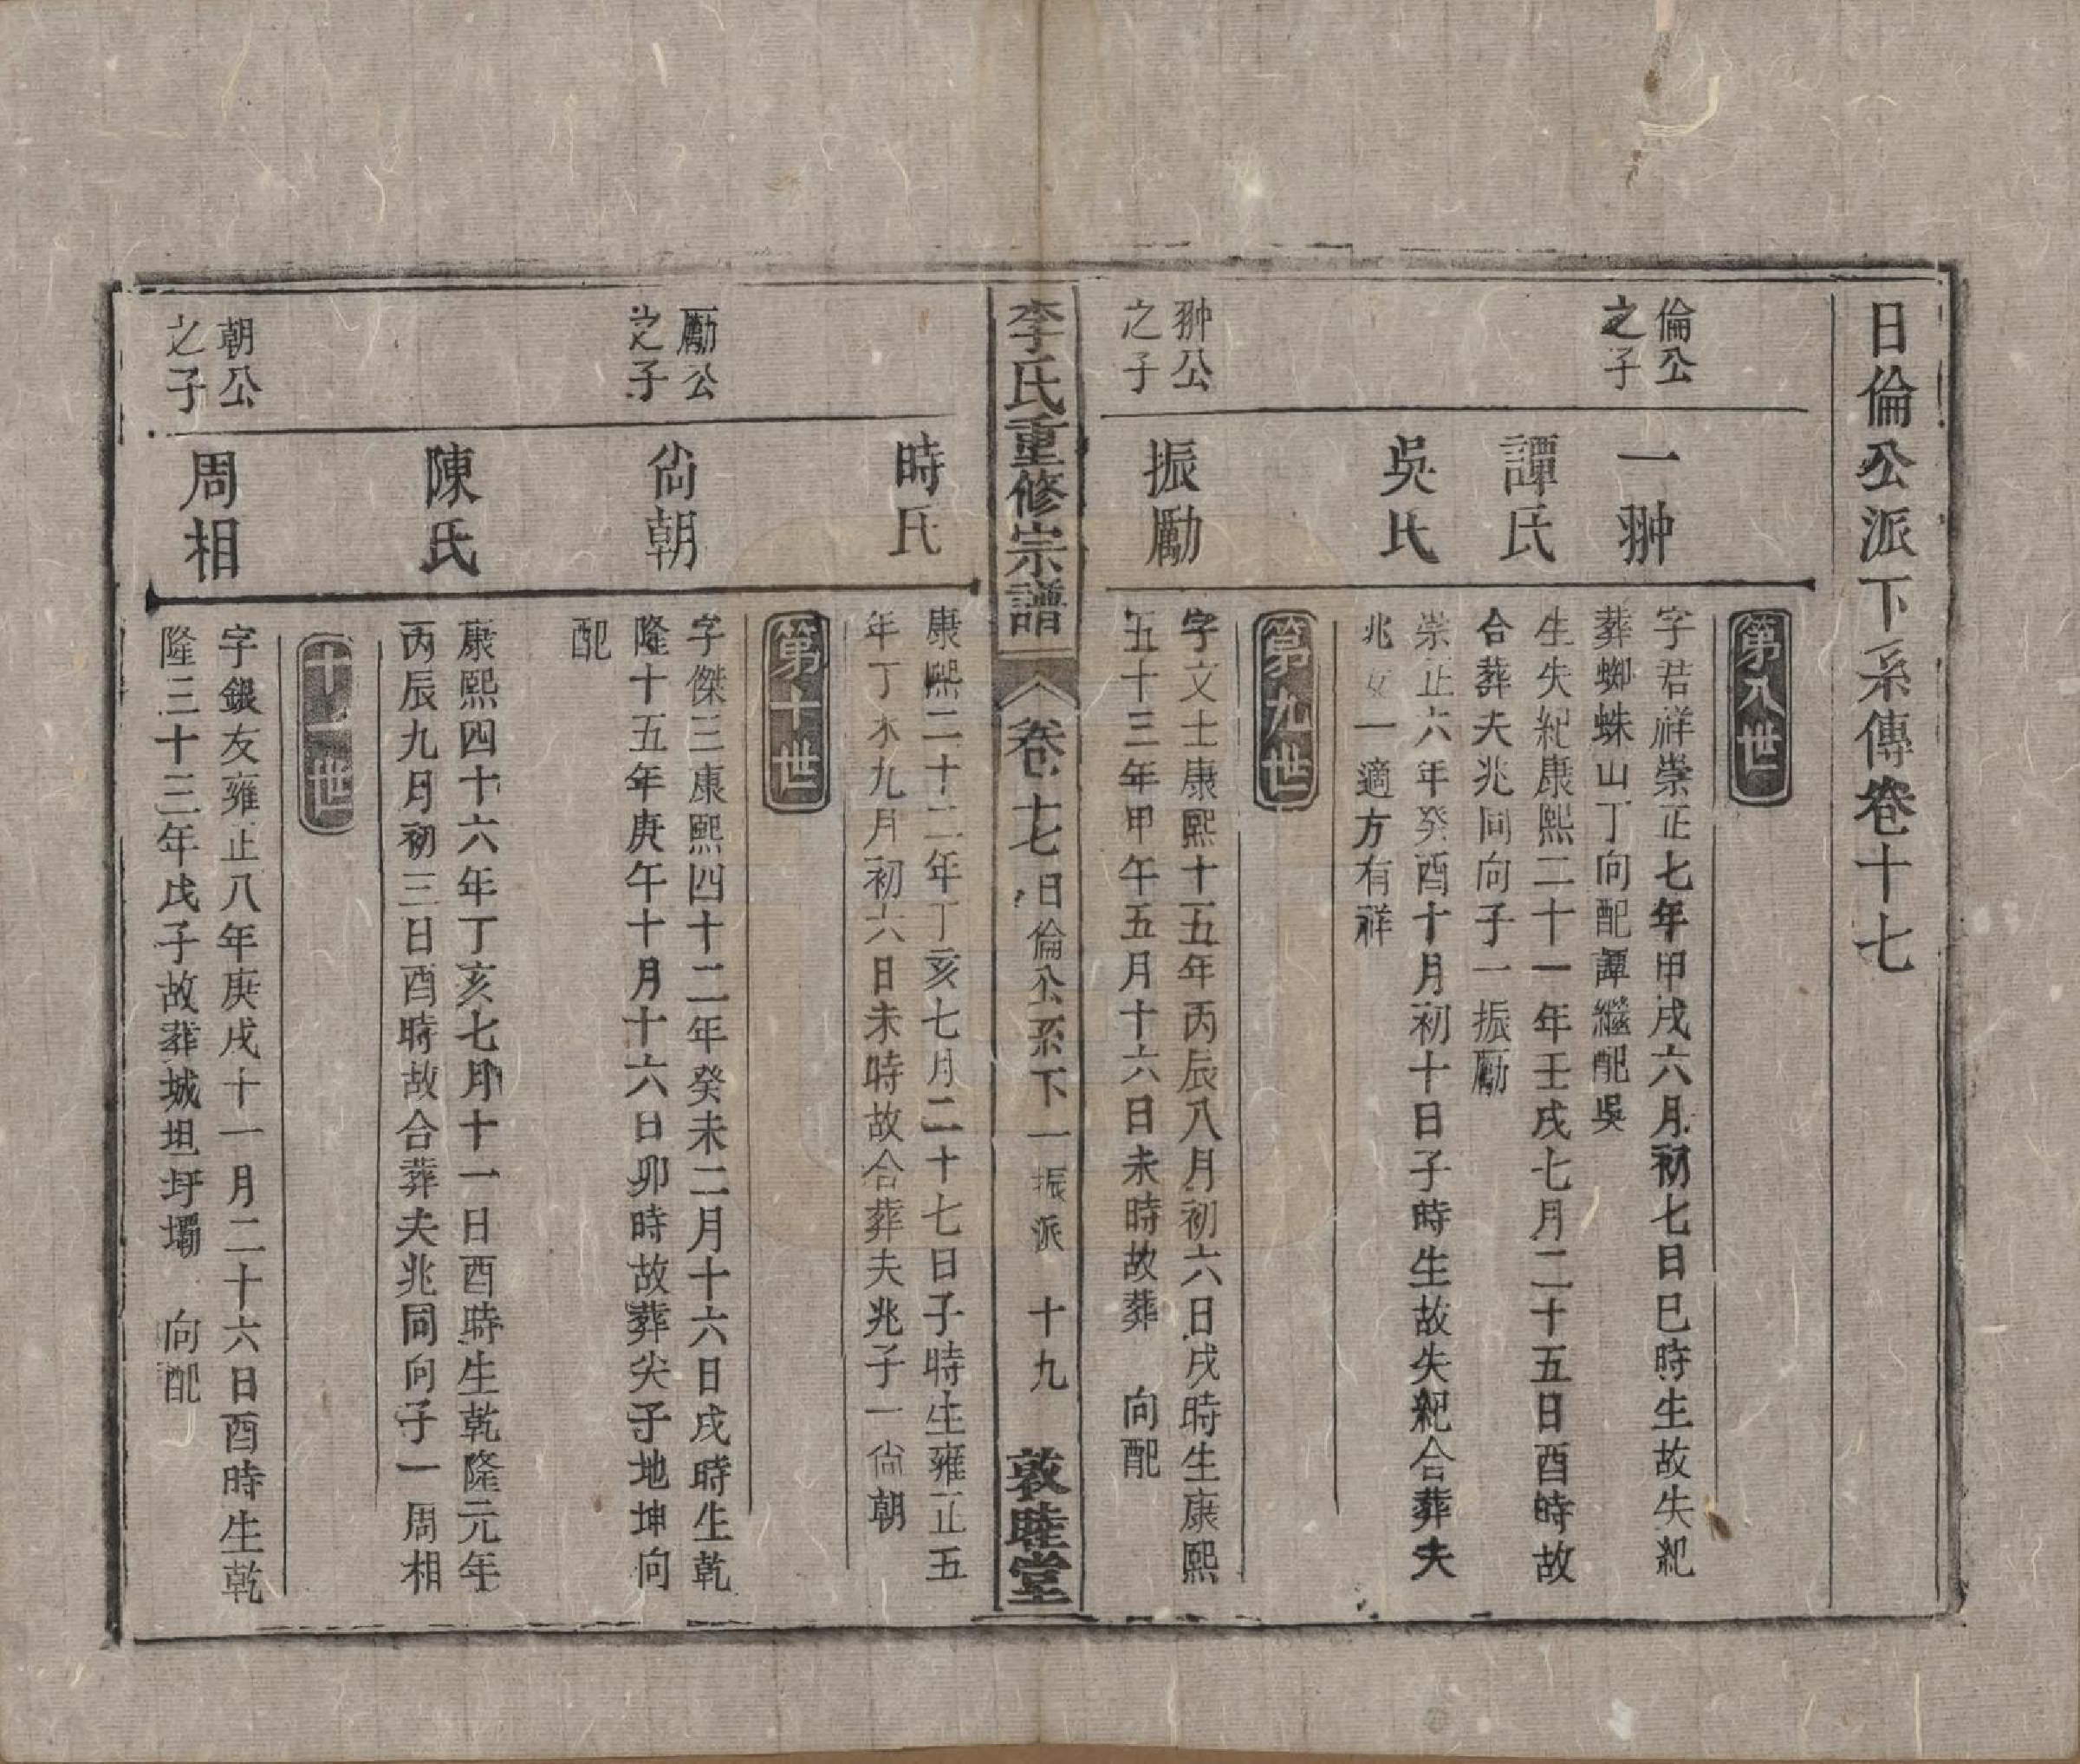 日倫公派下系傳卷十七
第八世
倫公
之子
一翀
字君祥崇正七年甲戌六月初七日巳時生故失紀
葬蜘蛛山丁向配譚繼配吳
譚氏
生失紀康熙二十一年壬戌七月二十五日酉時故
合葬夫兆同向子一振勵
吳氏
崇正六年癸酉十月初十日子時生故失紀合葬夫
兆女一適方有祥
第九世
翀公
之子
振勵
字文士康熙十五年丙辰八月初六日戌時生康熙
五十三年甲午五月十六日未時故葬　向配
李氏重修宗譜
卷十七
日倫公系下一振派
十九
敦睦堂
時氏
康熙二十二年丁亥七月二十七日子時生雍正五
年丁未九月初六日未時故合葬夫兆子一尙朝
第十世
勵公
之子
尙朝
字傑三康熙四十二年癸未二月十六日戌時生乾
隆十五年庚午十月十六日卯時故葬尖子地坤向
配
陳氏
康熙四十六年丁亥七月十一日酉時生乾隆元年
丙辰九月初三日酉時故合葬夫兆同向子一周相
十一世
朝公
之子
周相
字銀友雍正八年庚戌十一月二十六日酉時生乾
隆三十三年戊子故葬城坦圩壩　向配